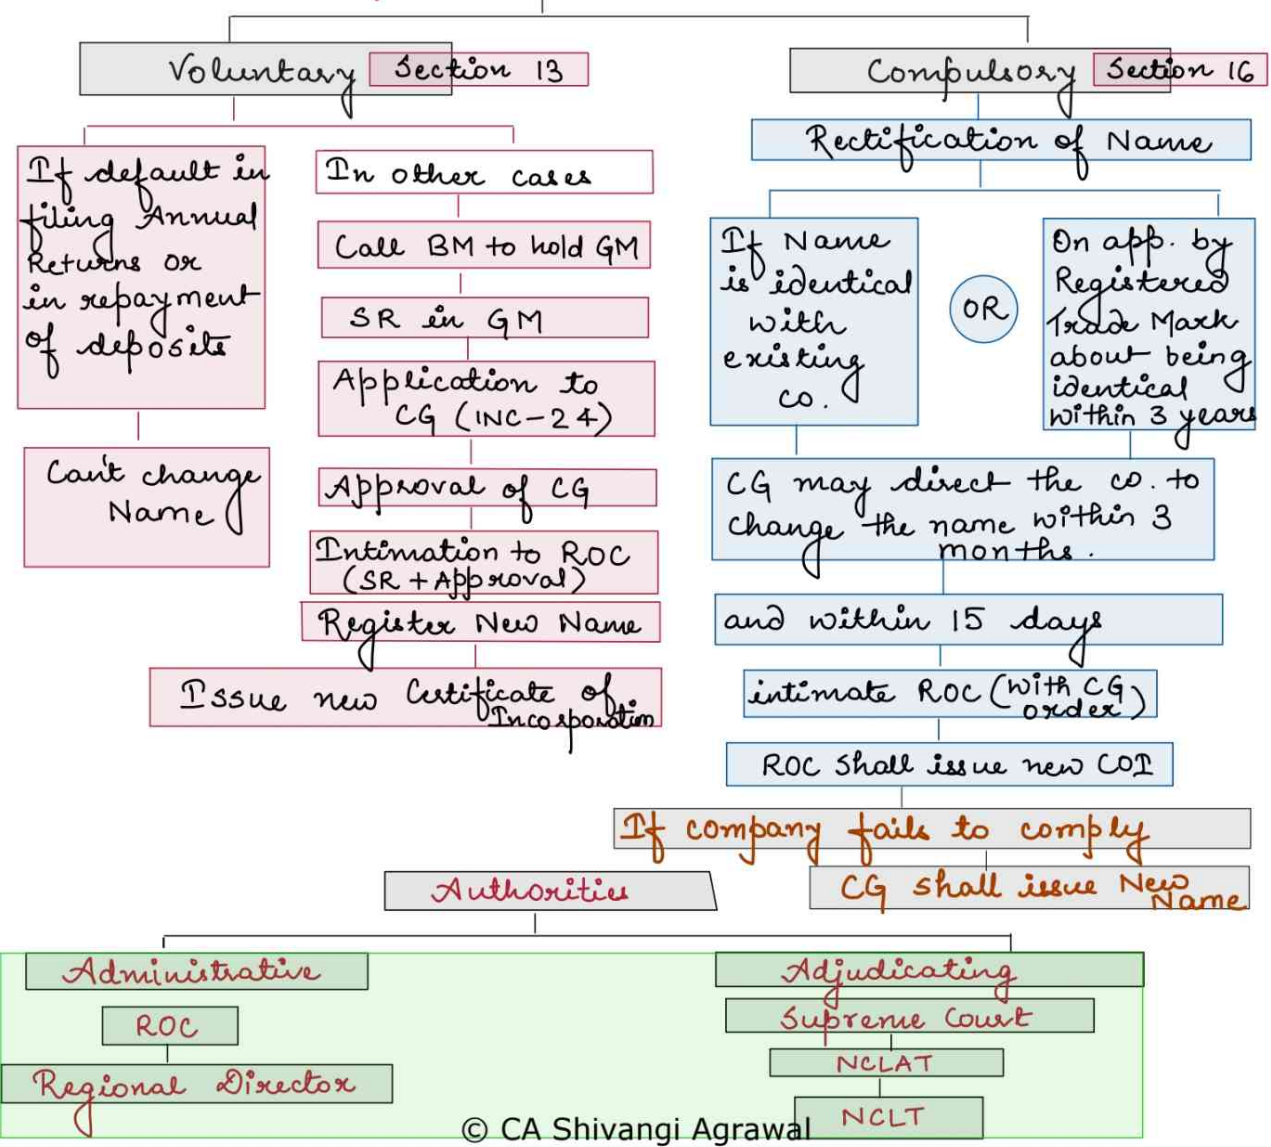 Voluntary Section 13
If default in
filing Annual
Returns or
in repayment
of deposits
Can't change
Name
In other cases
Call BM to hold GM
SR in GM
Application to
CG (INC-24)
Approval of CG
Intimation to ROC
(SR + Approval)
Register New Name
Issue new Certificate of
Incorporation
Compulsory Section 16
Rectification of Name
If Name
is identical
with
existing
co.
OR
On app. by
Registered
Trade Mark
about being
identical
within 3 years
CG may direct the co. to
change the name within 3
months.
and within 15 days
intimate ROC (with CG
order)
ROC shall issue new COI
If company fails to comply
CG shall issue New
Name
Authorities
Administrative
ROC
Regional Director
Adjudicating
Supreme Court
NCLAT
NCLT
© CA Shivangi Agrawal